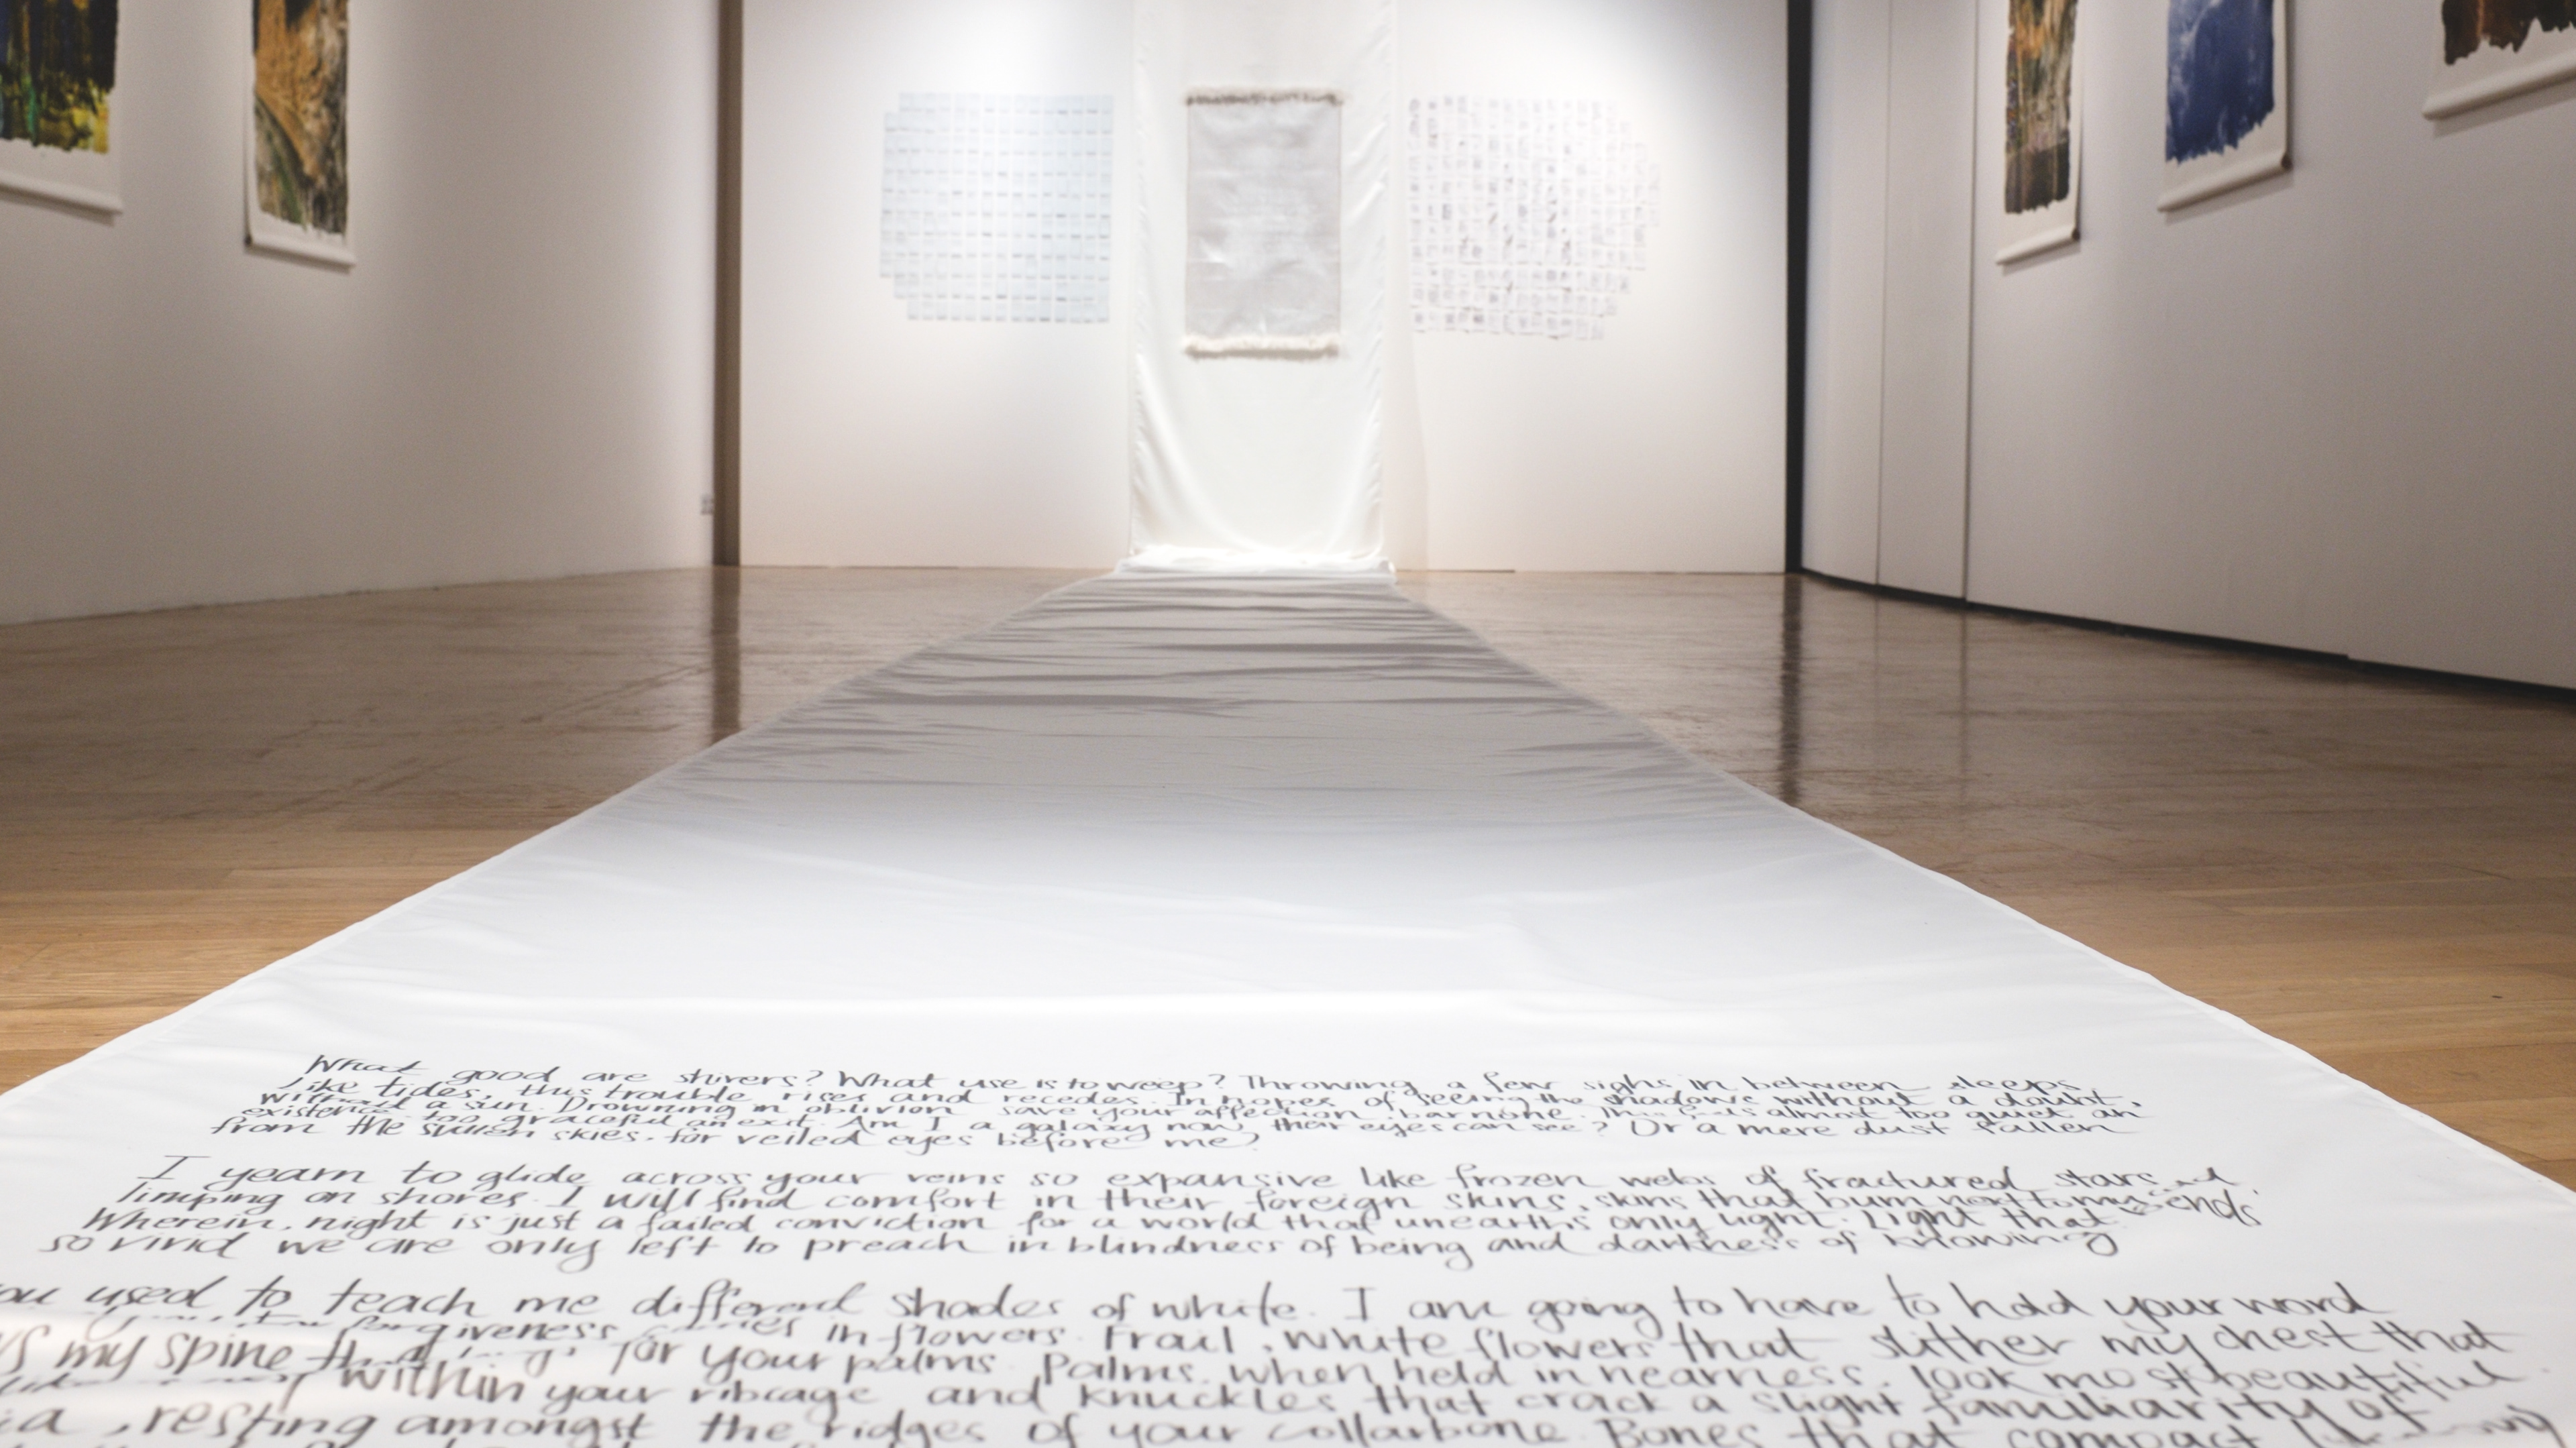 What good are shivers? What use is to weep? Throwing a few sighs in between sleeps.
Like tides, this trouble rises and recedes. In hopes of seeing the shadows without a doubt,
without a sun. Drowning in oblivion save your affection, bar none. almost too quiet an
existence too graceful an exit. Am I a galaxy now, their eyes can see? Or a mere dust fallen
from the sullen skies, for veiled eyes before me?
I yearn to glide across your veins so expansive like frozen webs of fractured stars
limping on shores. I will find comfort in their foreign skins, skins that burn next to my
Wherein, night is just a failed conviction for a world that unearths only light. Light that
so vivid we are only left to preach in blindness of being and darkness of knowing
used to teach me different shades of white. I am going to have to hold your word
forgiveness in flowers. Frail, white flowers that slither my chest that
my spine for your palms. Palms, when held in nearness, look most beautiful
within your ribcage and knuckles that crack a slight familiarity of
resting amongst the ridges of your collarbone. Bones that compact